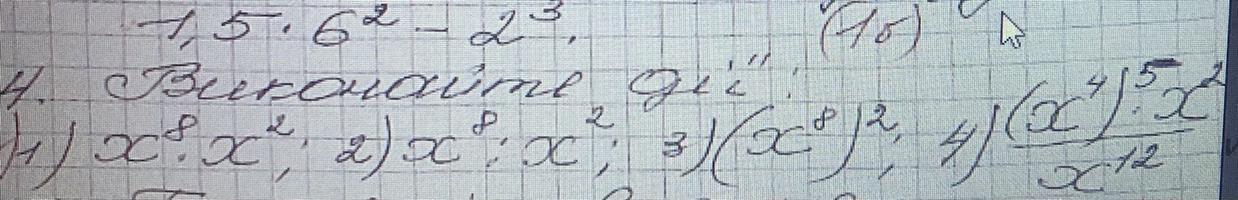 -1,5 · 6² - 2³. (1б)
4. Виконайте дії:
1) x⁸ · x²; 2) x⁸ : x²; 3) (x⁸)²; 4) (x⁴)⁵ · x² / x¹²